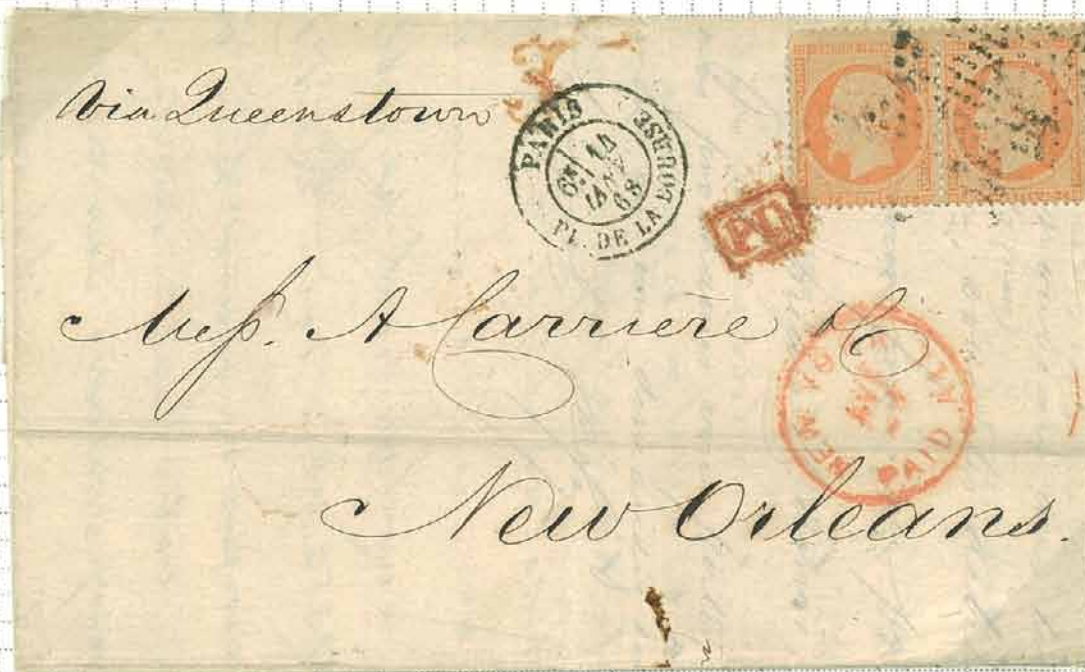 Via Queenstown
PARIS
14
JANV
68
PL. DE LA BOURSE
PD
Mess. A Carrière & C
NEW YORK
PAID
New Orleans.